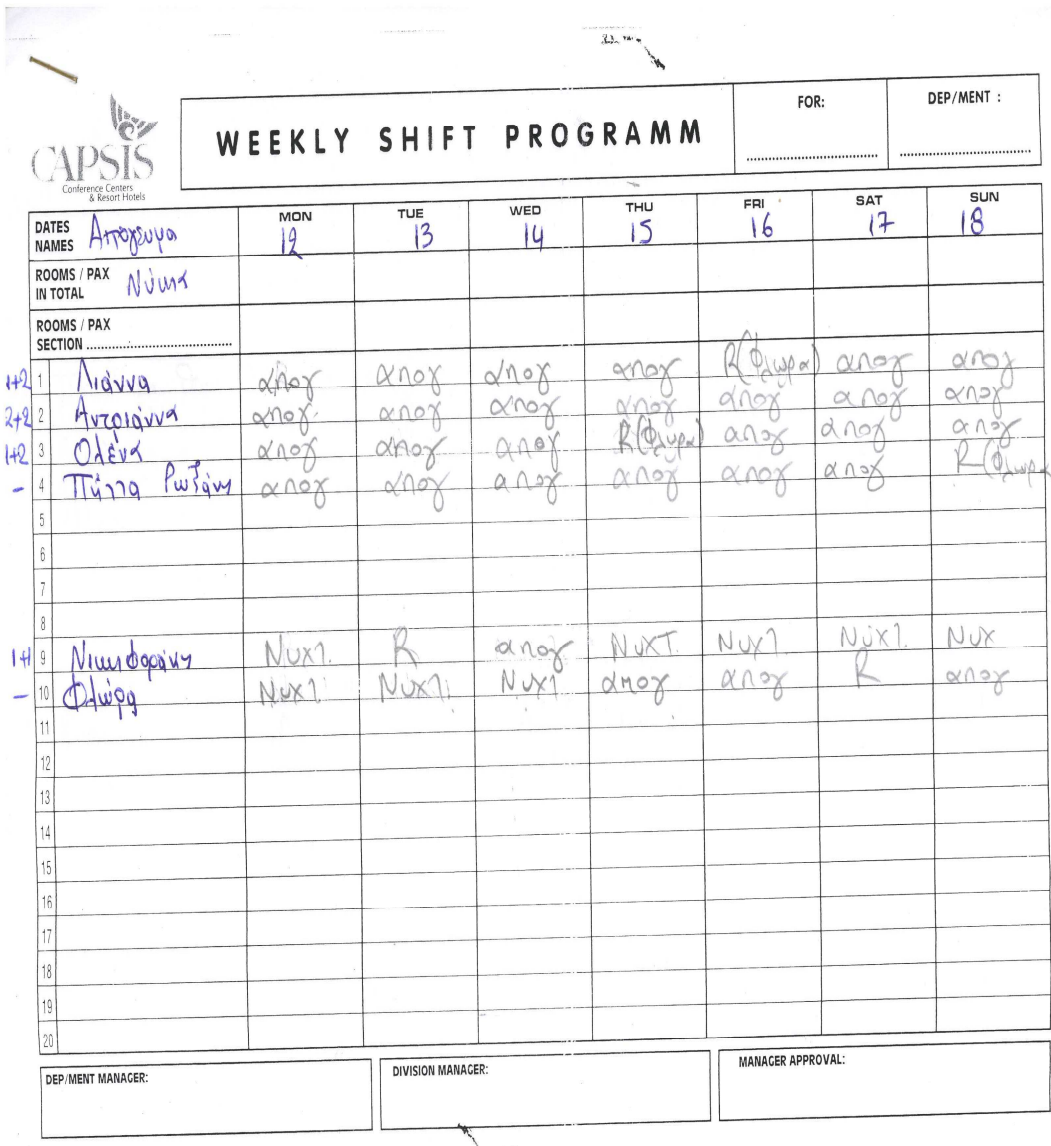 CAPSIS
Conference Centers
& Resort Hotels
WEEKLY SHIFT PROGRAMM
FOR:
DEP/MENT :
DATES
NAMES Απόγευμα MON 12 TUE 13 WED 14 THU 15 FRI 16 SAT 17 SUN 18
ROOMS / PAX
IN TOTAL Νύχτα
ROOMS / PAX
SECTION
1+2 1 Λιάννα απογ απογ απογ απογ R(Φλώρα) απογ απογ
2+2 2 Αντριάννα απογ απογ απογ απογ απογ απογ απογ
1+2 3 Ολένα απογ απογ απογ R(Φλώρα) απογ απογ απογ
- 4 Πίττα απογ απογ απογ απογ απογ απογ R(Φλώρα
5
6
7
8
1+1 9 Νικηφοράκης Νυχτ. R απογ Νυχτ. Νυχτ. Νυχτ. Νυχ
- 10 Φλώρα Νυχτ. Νυχτ. Νυχτ. απογ απογ R απογ
11
12
13
14
15
16
17
18
19
20
DEP/MENT MANAGER:
DIVISION MANAGER:
MANAGER APPROVAL: